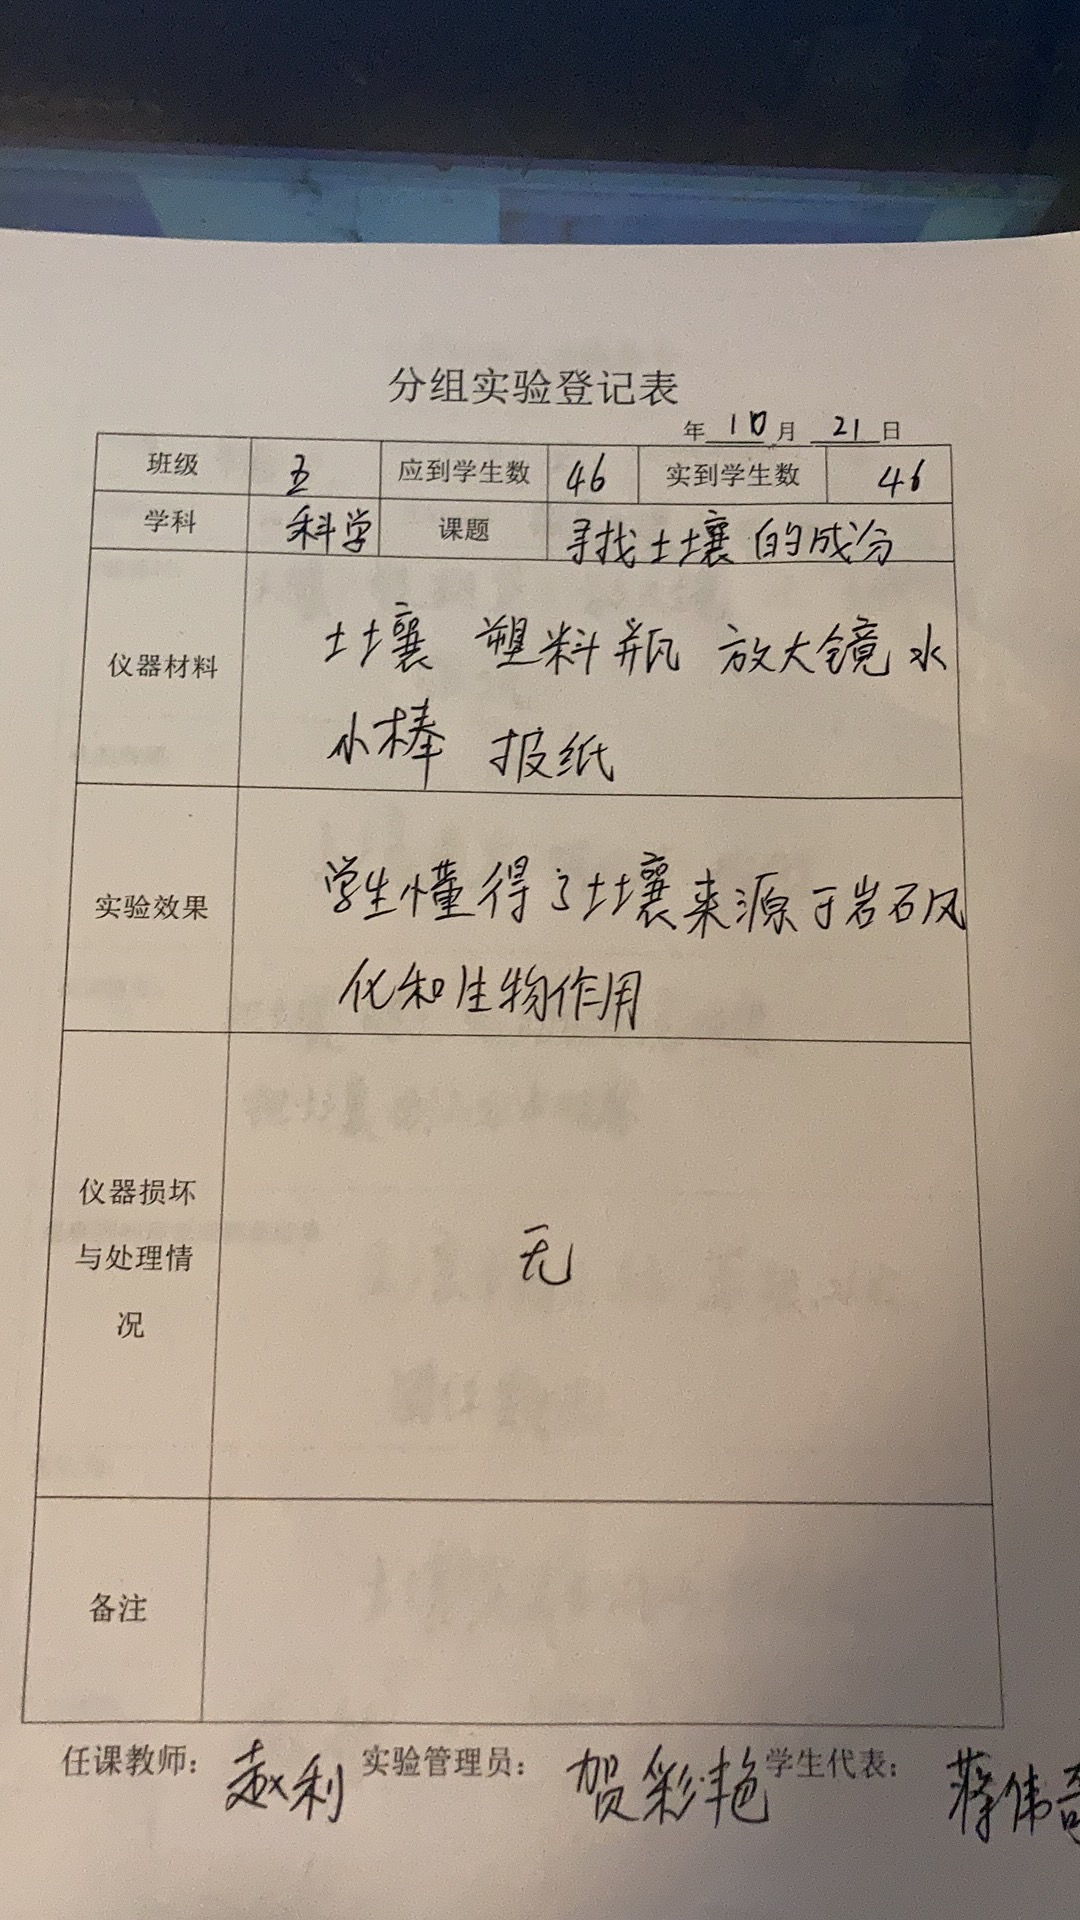 分组实验登记表
年 10 月 21 日
班级 五 应到学生数 46 实到学生数 46
学科 科学 课题 寻找土壤的成分
仪器材料
土壤 塑料瓶 放大镜 水
小棒 报纸
实验效果
学生懂得了土壤来源于岩石风
化和生物作用
仪器损坏
与处理情
况
无
备注
任课教师: 赵利 实验管理员: 贺彩艳 学生代表: 蒋伟奇